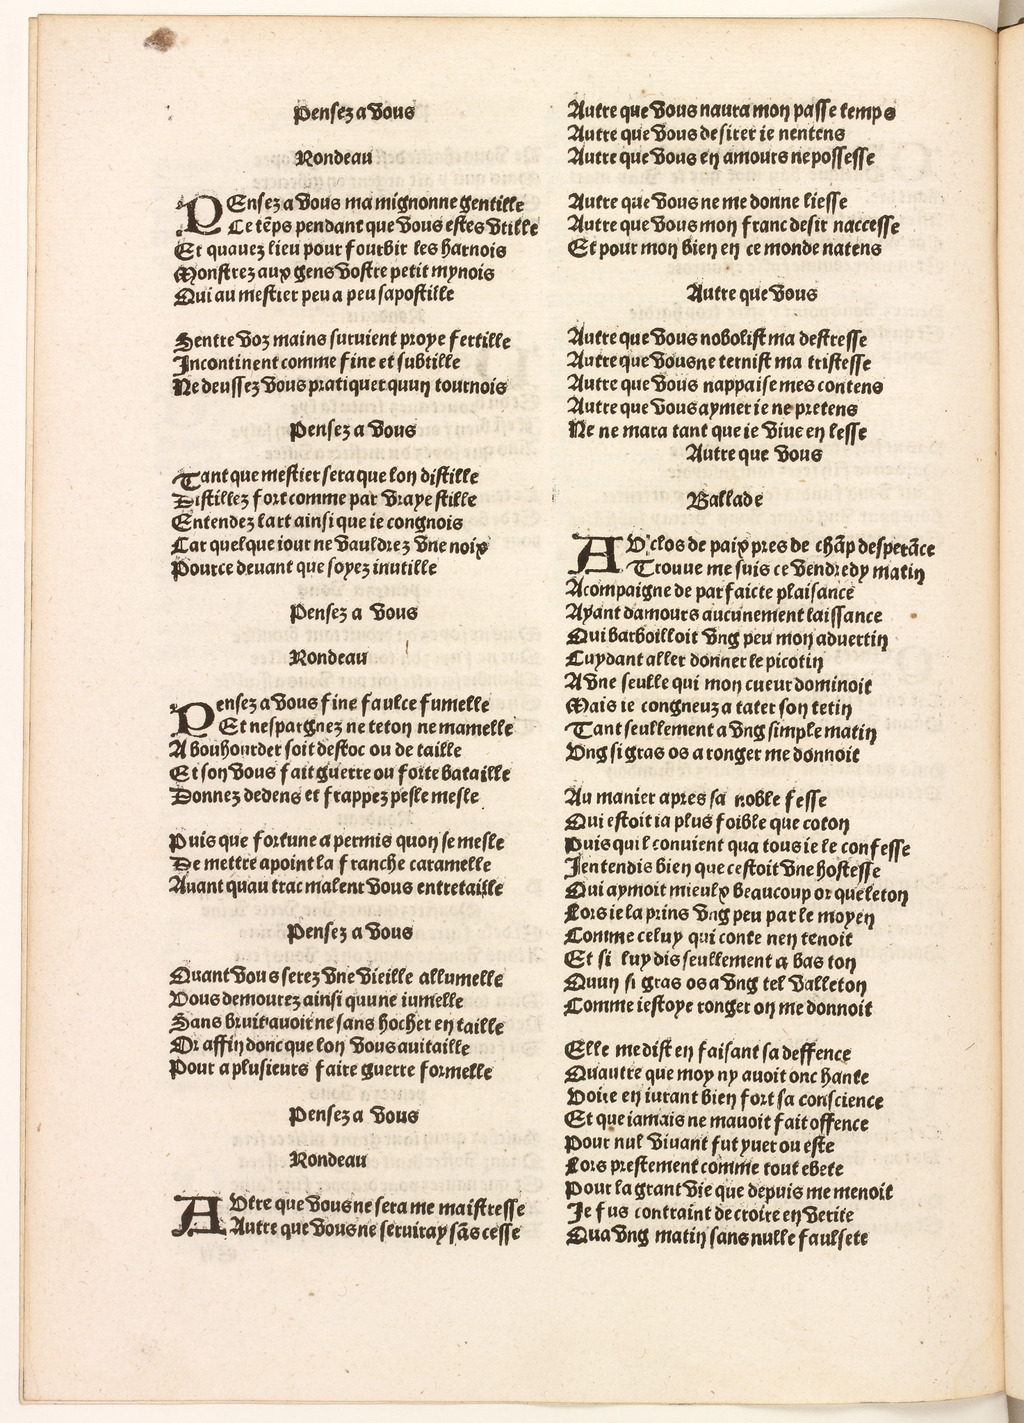 Pensez a vous
Rondeau
PEnsez a vous ma mignonne gentille
Ce tēps pendant que vous estes vtille
Et quauez lieu pour fourbir les harnois
Monstrez aux gens vostre petit mynois
Qui au mestier peu a peu sapostille
Sentre voz mains suruient proye fertille
Incontinent comme fine et subtille
Ne deussez vous pratiquer quun tournois
Pensez a vous
Tant que mestier sera que lon distille
Distillez fort comme par vraye stille
Entendez lart ainsi que ie congnois
Car quelque iour ne vauldrez vne noix
Pource deuant que soyez inutille
Pensez a vous
Rondeau
Pensez a vous fine faulce fumelle
Et nespargnez ne teton ne mamelle
A bouhourder soit destoc ou de taille
Et son vous fait guerre ou forte bataille
Donnez dedens et frappez pesle mesle
Puis que fortune a permis quon se mesle
De mettre apoint la franche caramelle
Auant quau trac malent vous entretaille
Pensez a vous
Quant vous serez vne vieille allumelle
Vous demourez ainsi quune iumelle
Sans bruit auoir ne sans hochet en taille
Or affin donc que lon vous auitaille
Pour a plusieurs faire guerre formelle
Pensez a vous
Rondeau
AVtre que vous ne sera me maistresse
Autre que vous ne seruiray sās cesse
Autre que vous naura mon passe temps
Autre que vous desirer ie nentens
Autre que vous en amours ne possesse
Autre que vous ne me donne liesse
Autre que vous mon franc desir naccesse
Et pour mon bien en ce monde natens
Autre que vous
Autre que vous nobolist ma destresse
Autre que vous ne ternist ma tristesse
Autre que vous nappaise mes contens
Autre que vous aymer ie ne pretens
Ne ne mara tant que ie viue en lesse
Autre que vous
Ballade
AV clos de paix pres de chāp desperāce
Trouue me suis ce vendredy matin
Acompaigne de parfaicte plaisance
Ayant damours aucunement laissance
Qui barboilloit vng peu mon aduertin
Cuydant aller donner le picotin
A vne seulle qui mon cueur dominoit
Mais ie congneuz a tater son tetin
Tant seullement a vng simple matin
Vng si gras os a ronger me donnoit
Au manier apres sa noble fesse
Qui estoit ia plus foible que coton
Puis quil conuient qua tous ie le confesse
Jentendis bien que cestoit vne hostesse
Qui aymoit mieulx beaucoup or que leton
Lors ie la prins vng peu par le moyen
Comme celuy qui conte nen tenoit
Et si luy dis seullement a bas ton
Quun si gras os a vng tel valleton
Comme iestoye ronger on me donnoit
Elle me dist en faisant sa deffence
Quautre que moy ny auoit onc hante
Voire en iurant bien fort sa conscience
Et que iamais ne mauoit fait offence
Pour nul viuant fut yuer ou este
Lors prestement comme tout ebete
Pour la grant vie que depuis me menoit
Je fus contraint de croire en verite
Qua vng matin sans nulle faulsete